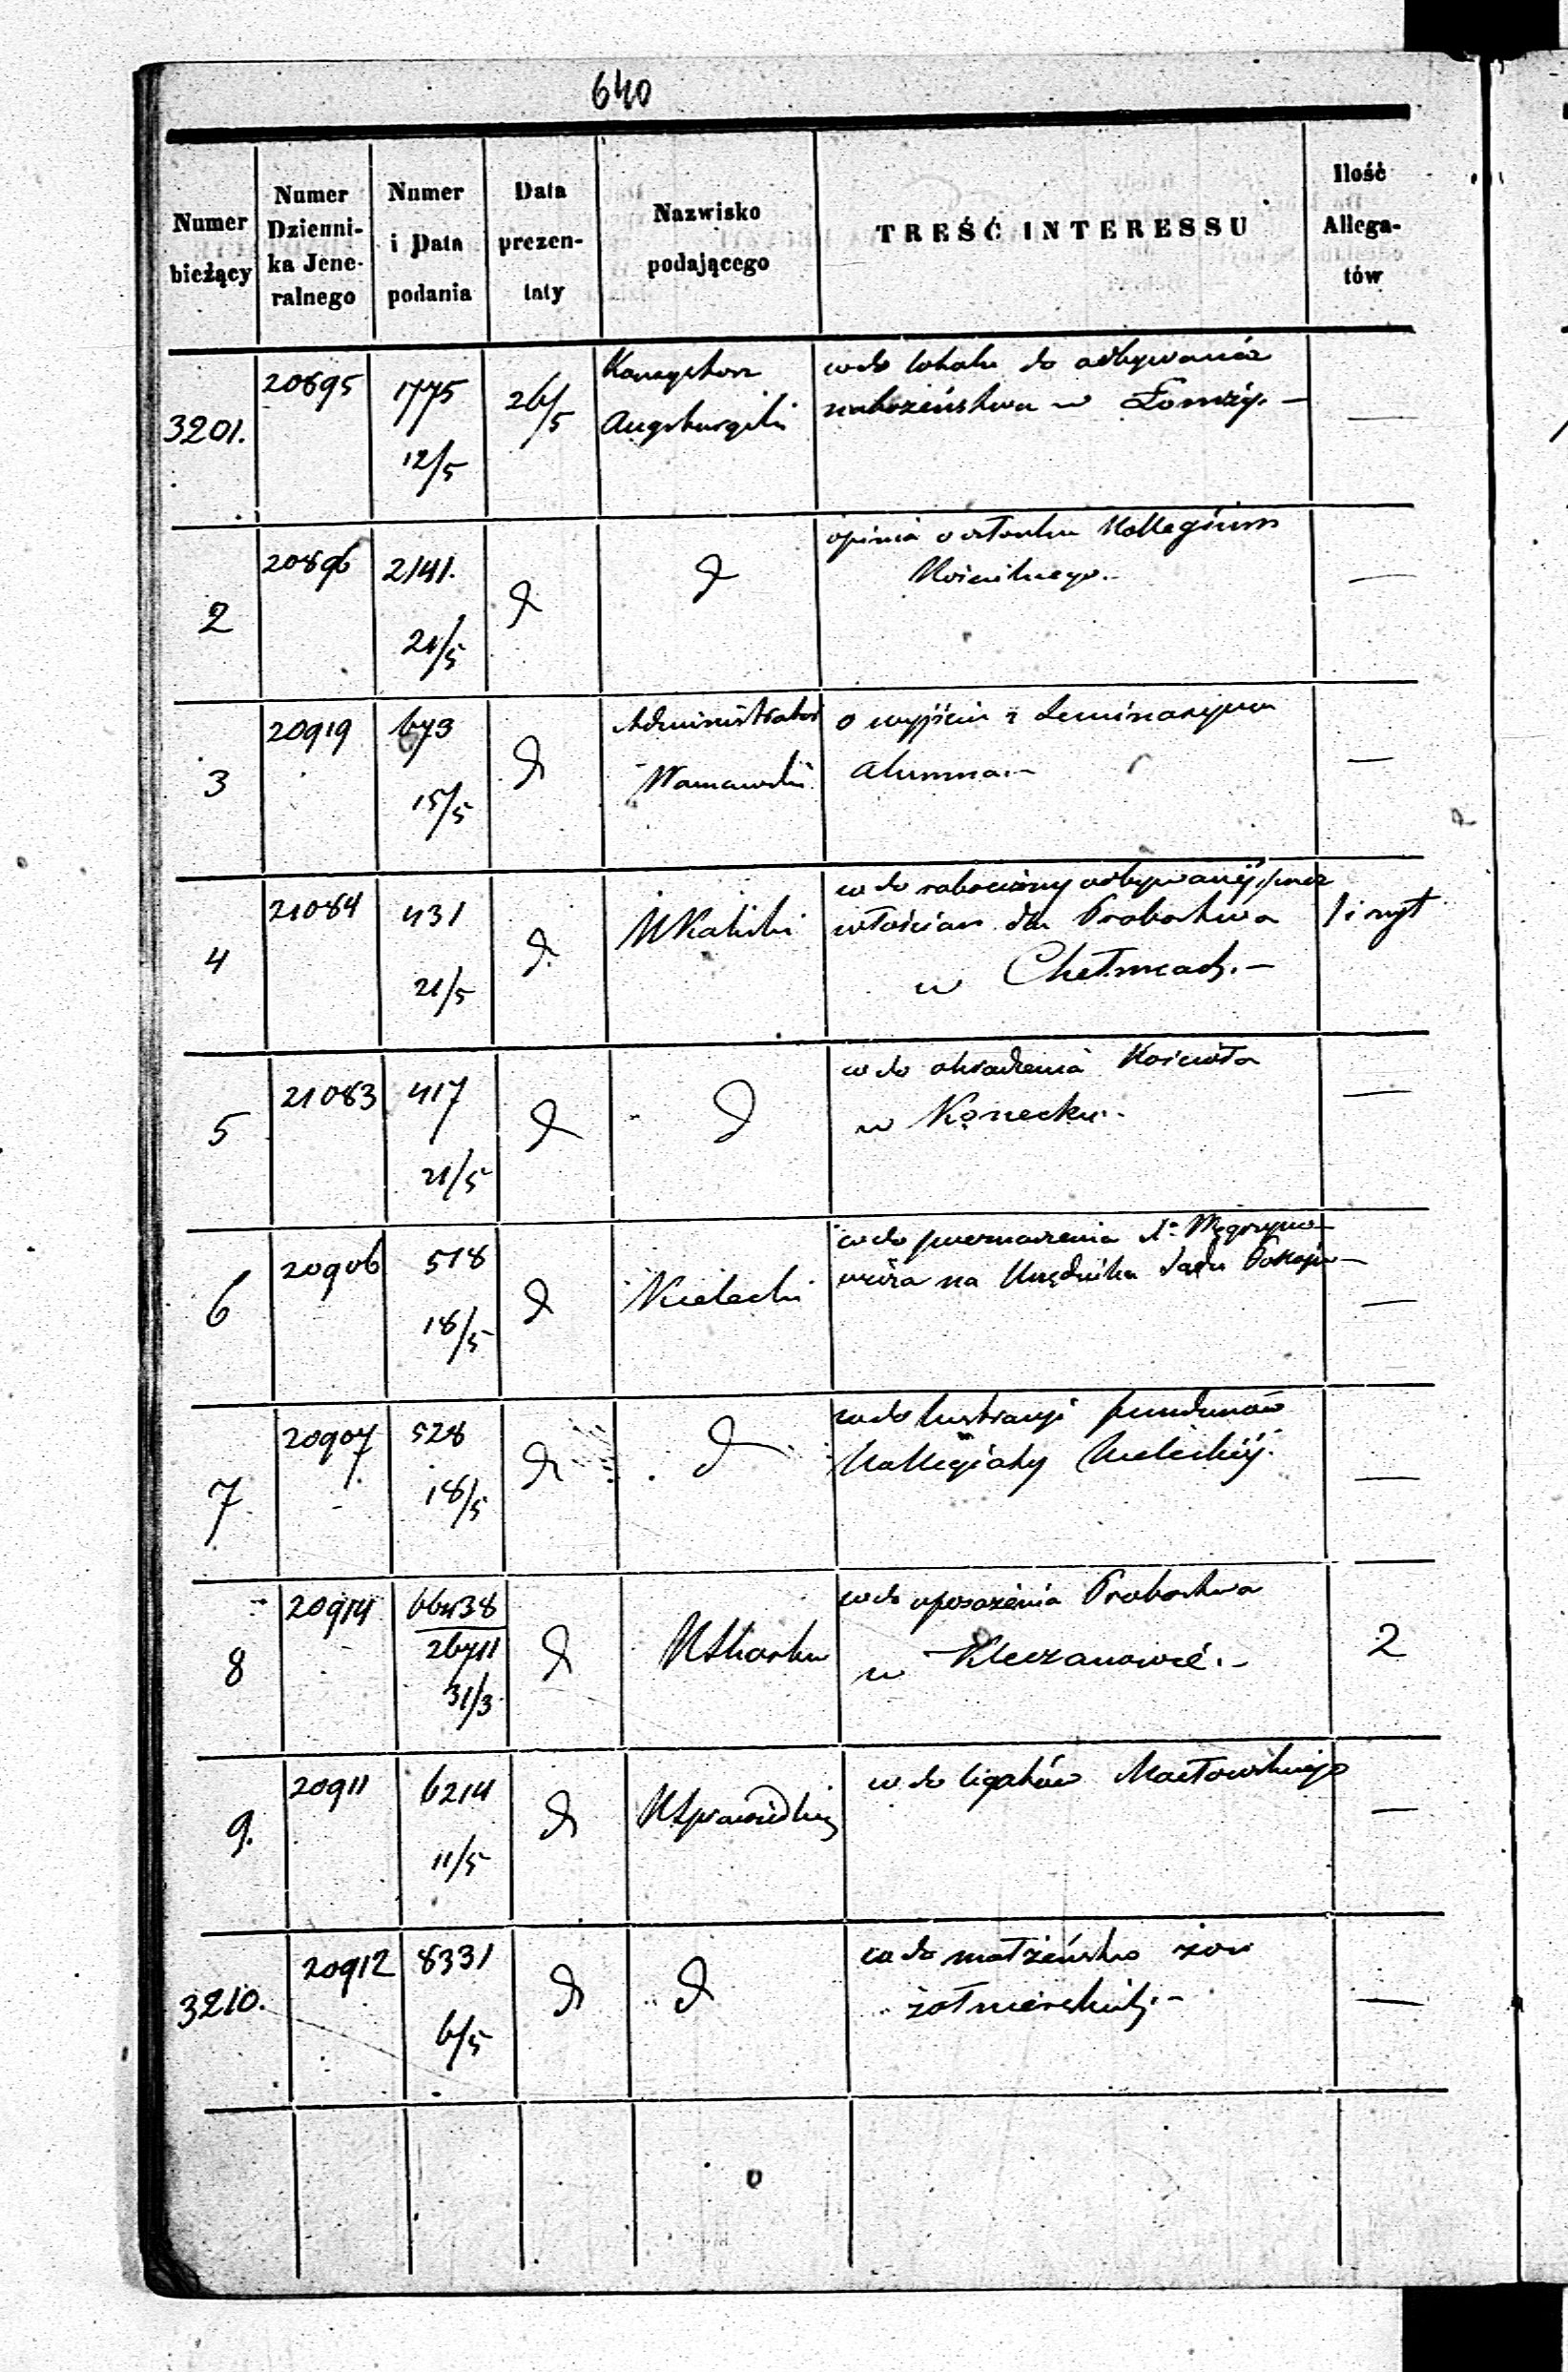 640
Numer bieżący
Numer Dzienni-ka Jene-ralnego
Numer i Data podania
Data prezen-taty
Nazwisko podającego
TREŚĆ INTERESSU
Ilość Allega-tów
3201. 20895 1775 12/5 26/5 Konsystorz Augsburgski
co do lokalu do odbywania
nabożeństwa w Łomży. —
2 20896 2141. 21/5 d d
opinia o członku Kollegium
Kościelnego. —
3 20919 673 15/5 d Administrator Warszawski
o wyjściu z Seminaryum
alumna. —
4 21084 431 21/5 d Kaliski
co do robocizny odbywanéj przez
włościan dla Probostwa
w Chełmcach. —
1 i zszyt
5 21083 417 21/5 d d
co do okradzenia Kościoła
w Konecku. —
6 20906 518 18/5 d Kielecki
co do przeznaczenia
na Urzędnika —
7 20907 528 18/5 d d
co do lustracyi funduszów
Kollegiaty Kieleckiéj.
—
8 20914 66438 26711 31/3 d KSkarbu
co do uposażenia Probostwa
w Kleczanowie. —
2
9. 20911 6214 11/5 d KSprawiedliw
co do legatów
—
3210. 20912 8331 6/5 d d
co do małżeństw żon
żołnierskich. —